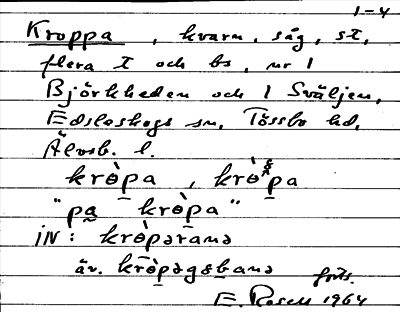 1-4
Kroppa, kvarn, såg, st,
flera t och bs, nr 1
Björkheden och 1 Sväljen,
Edsleskogs sn, Tössbo hd,
Älvsb. l.
krò̠pa, krò̠pa
"pa krò̠pa"
iN: kròpərana
äv. kròpəgsbana forts.
E. Rosell 1964